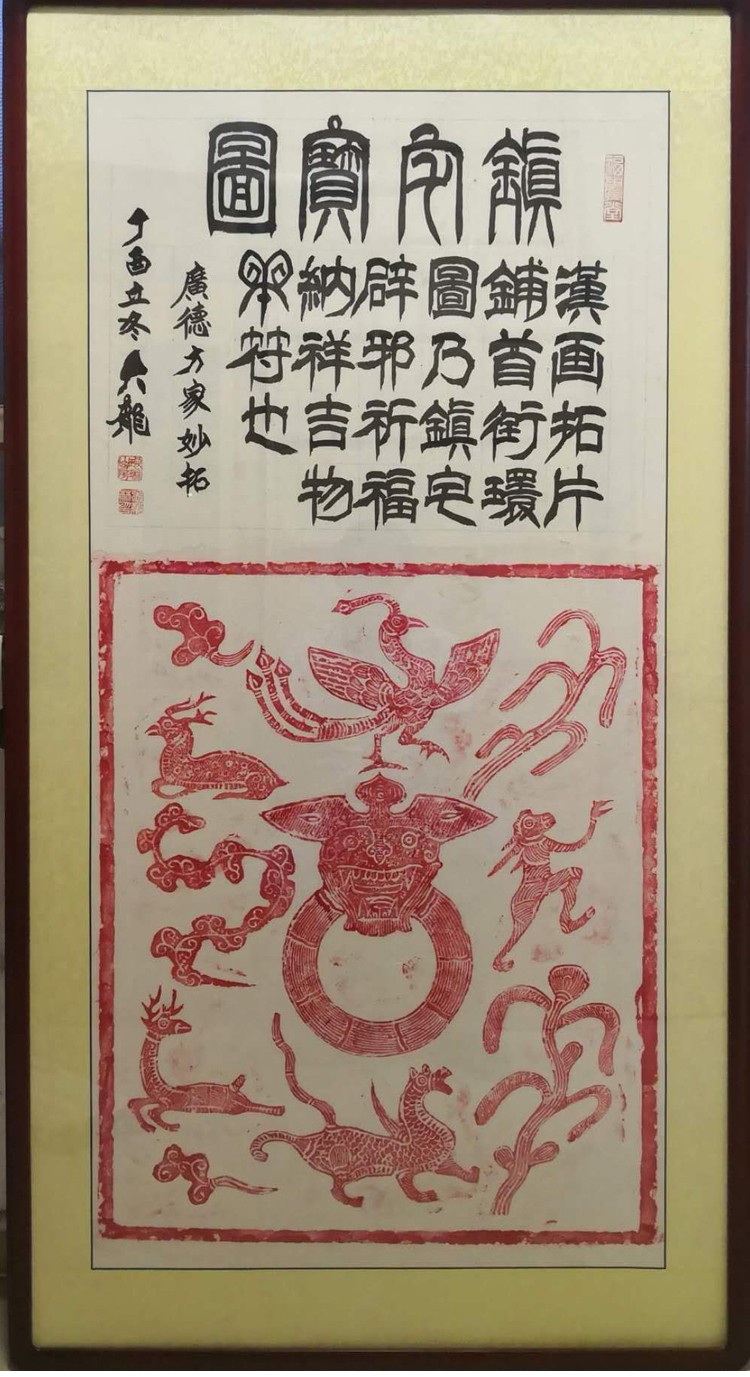 鎮寶圖
漢画拓片
鋪首銜環
圖乃鎮宅
辟邪祈福
納祥吉物
符也
廣德方家妙拓
丁酉立冬龍